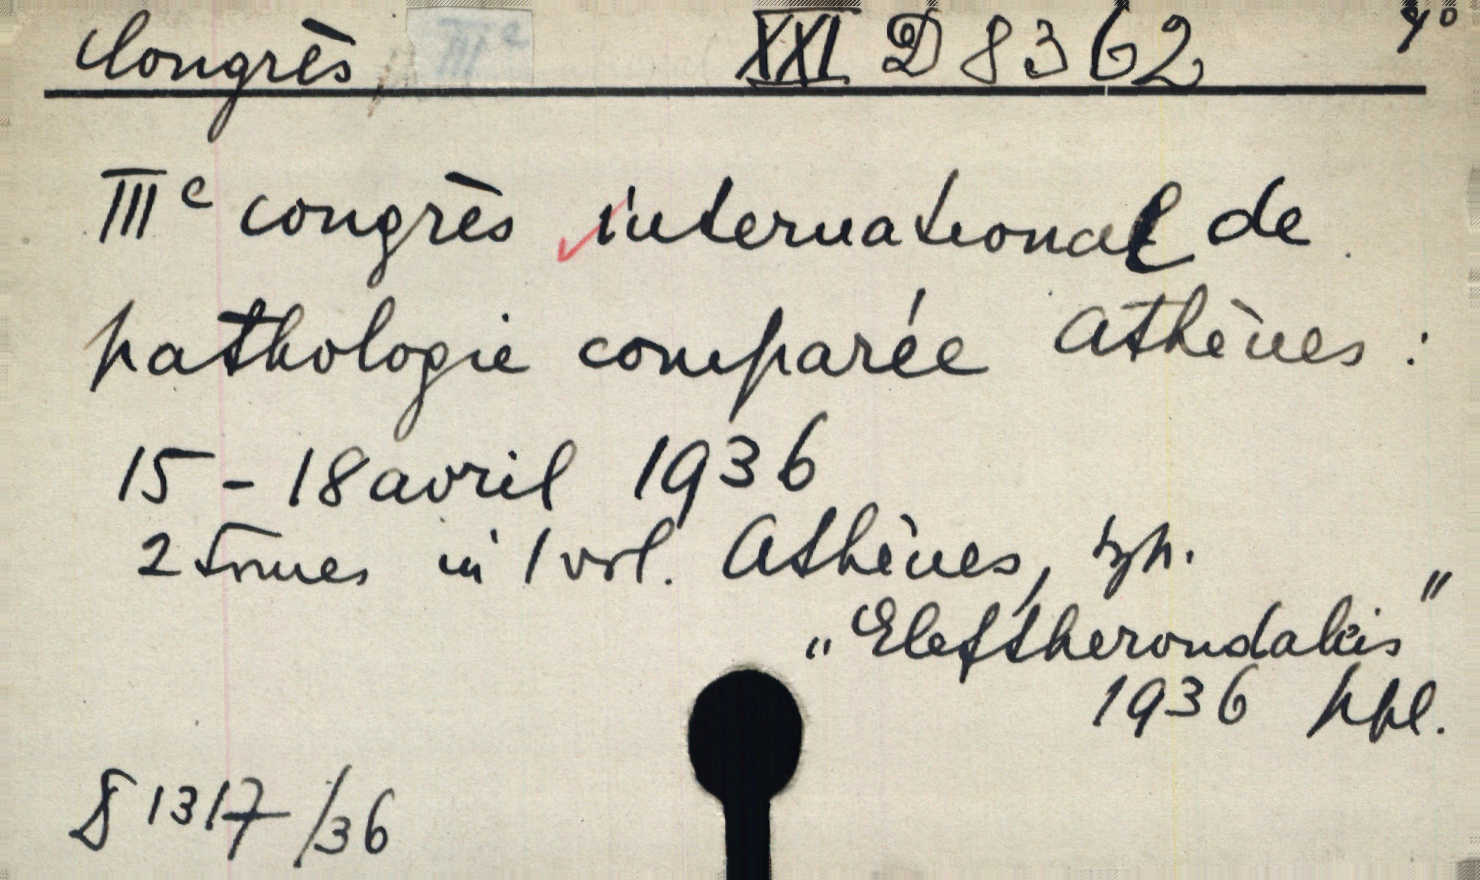 Congrès, IIIe XXI D 8362 4°
IIIe congrès international de
pathologie comparée Athènes :
15 - 18 avril 1936
2 tomes in 1 vol. Athènes, typ.
„Eleftheroudakis"
1936 ppl.
1317/36